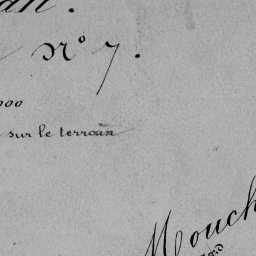 an.
N° 7.
000
sur le terrain
Mouch